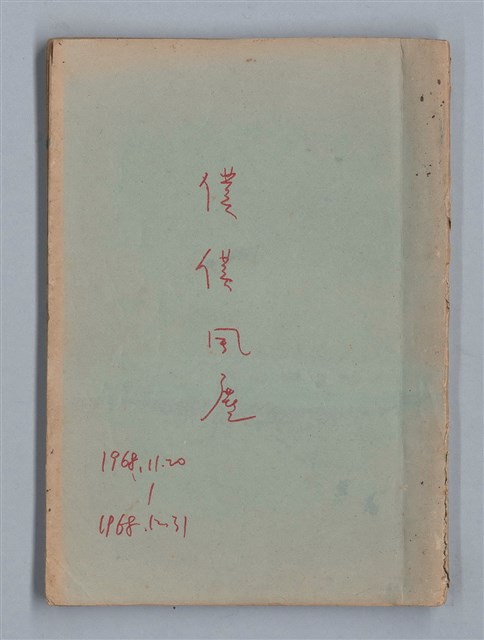 僕僕風塵
1968.11.20
|
1968.12.31